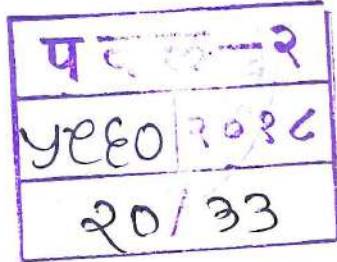 २
५९६० २०१८
२०/३३